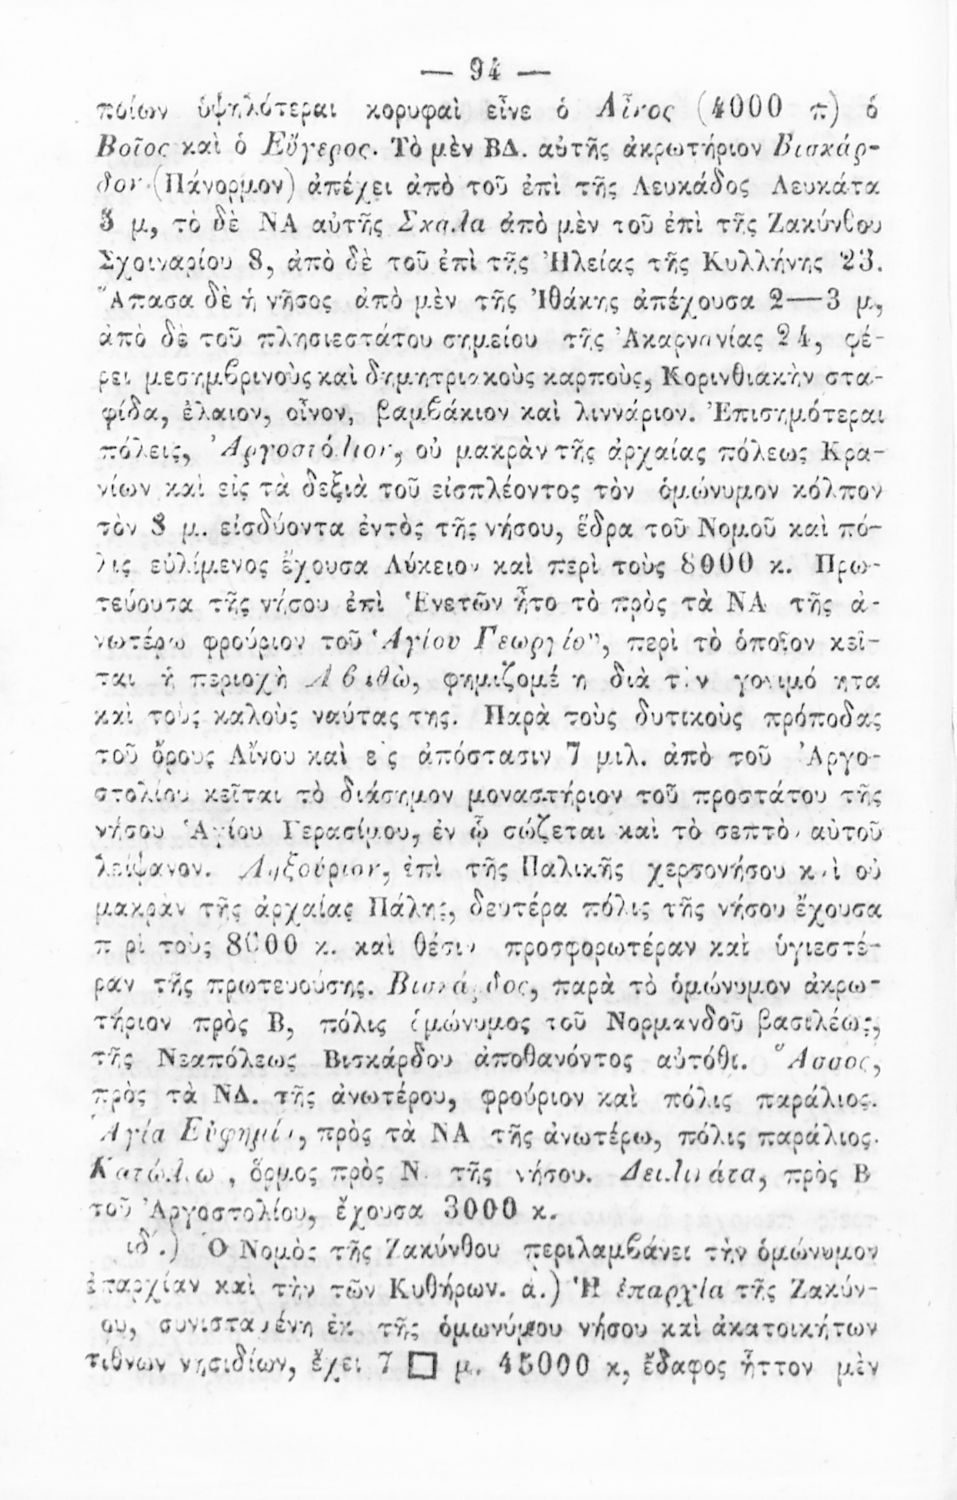 — 94 —
ποίων ὑψηλότεραι κορυφαὶ εἶνε ὁ Αἶνος (4000 π) ὁ
Βοῖος καὶ ὁ Εὔγερος. Τὸ μὲν ΒΔ. αὐτῆς ἀκρωτήριον Βισκάρ-
δον (Πάνορμον) ἀπέχει ἀπὸ τοῦ ἐπὶ τῆς Λευκάδος Λευκάτα
5 μ, τὸ δὲ ΝΑ αὐτῆς Σκάλα ἀπὸ μὲν τοῦ ἐπὶ τῆς Ζακύνθου
Σχοιναρίου 8, ἀπὸ δὲ τοῦ ἐπὶ τῆς Ἠλείας τῆς Κυλλήνης 23.
Ἅπασα δὲ ἡ νῆσος ἀπὸ μὲν τῆς Ἰθάκης ἀπέχουσα 2—3 μ,
ἀπὸ δὲ τοῦ πλησιεστάτου σημείου τῆς Ἀκαρνανίας 24, φέ-
ρει μεσημβρινοὺς καὶ δημητριακοὺς καρποὺς, Κορινθιακὴν στα-
φίδα, ἔλαιον, οἶνον, βαμβάκιον καὶ λιννάριον. Ἐπισημότεραι
πόλεις, Ἀργοστόλιον, οὐ μακρὰν τῆς ἀρχαίας πόλεως Κρα-
νίων καὶ εἰς τὰ δεξιὰ τοῦ εἰσπλέοντος τὸν ὁμώνυμον κόλπον
τὸν 8 μ. εἰσδύοντα ἐντὸς τῆς νήσου, ἕδρα τοῦ Νομοῦ καὶ πό-
λις εὐλίμενος ἔχουσα Λύκειον καὶ περὶ τοὺς 8000 κ. Πρω-
τεύουσα τῆς νήσου ἐπὶ Ἑνετῶν ἦτο τὸ πρὸς τὰ ΝΑ τῆς ἀ-
νωτέρω φρούριον τοῦ Ἁγίου Γεωργίου, περὶ τὸ ὁποῖον κεῖ-
ται ἡ περιοχὴ Λιβαθὼ, φημιζομένη διὰ τὴν γονιμότητα
καὶ τοὺς καλοὺς ναύτας της. Παρὰ τοὺς δυτικοὺς πρόποδας
τοῦ ὄρους Αἴνου καὶ εἰς ἀπόστασιν 7 μιλ. ἀπὸ τοῦ Ἀργο-
στολίου κεῖται τὸ διάσημον μοναστήριον τοῦ προστάτου τῆς
νήσου Ἁγίου Γερασίμου, ἐν ᾧ σώζεται καὶ τὸ σεπτὸν αὐτοῦ
λείψανον. Ληξούριον, ἐπὶ τῆς Παλικῆς χερσονήσου καὶ οὐ
μακρὰν τῆς ἀρχαίας Πάλης, δευτέρα πόλις τῆς νήσου ἔχουσα
περὶ τοὺς 8000 κ. καὶ θέσιν προσφορωτέραν καὶ ὑγιεστέ-
ραν τῆς πρωτευούσης. Βισκάρδος, παρὰ τὸ ὁμώνυμον ἀκρω-
τήριον πρὸς Β, πόλις ὁμώνυμος τοῦ Νορμανδοῦ βασιλέως,
τῆς Νεαπόλεως Βισκάρδου ἀποθανόντος αὐτόθι. Ἄσσος,
πρὸς τὰ ΝΔ. τῆς ἀνωτέρου, φρούριον καὶ πόλις παράλιος.
Ἁγία Εὐφημία, πρὸς τὰ ΝΑ τῆς ἀνωτέρω, πόλις παράλιος.
ὅρμος πρὸς Ν. τῆς νήσου. Δειλινάτα, πρὸς Β
τοῦ Ἀργοστολίου, ἔχουσα 3000 κ.
ιδ΄.) Ὁ Νομὸς τῆς Ζακύνθου περιλαμβάνει τὴν ὁμώνυμον
ἐπαρχίαν καὶ τὴν τῶν Κυθήρων. ά.) Ἡ ἐπαρχία τῆς Ζακύν-
θου, συνισταμένη ἐκ τῆς ὁμωνύμου νήσου καὶ ἀκατοικήτων
τινων νησιδίων, ἔχει 7 □ μ. 45000 κ, ἔδαφος ἧττον μὲν